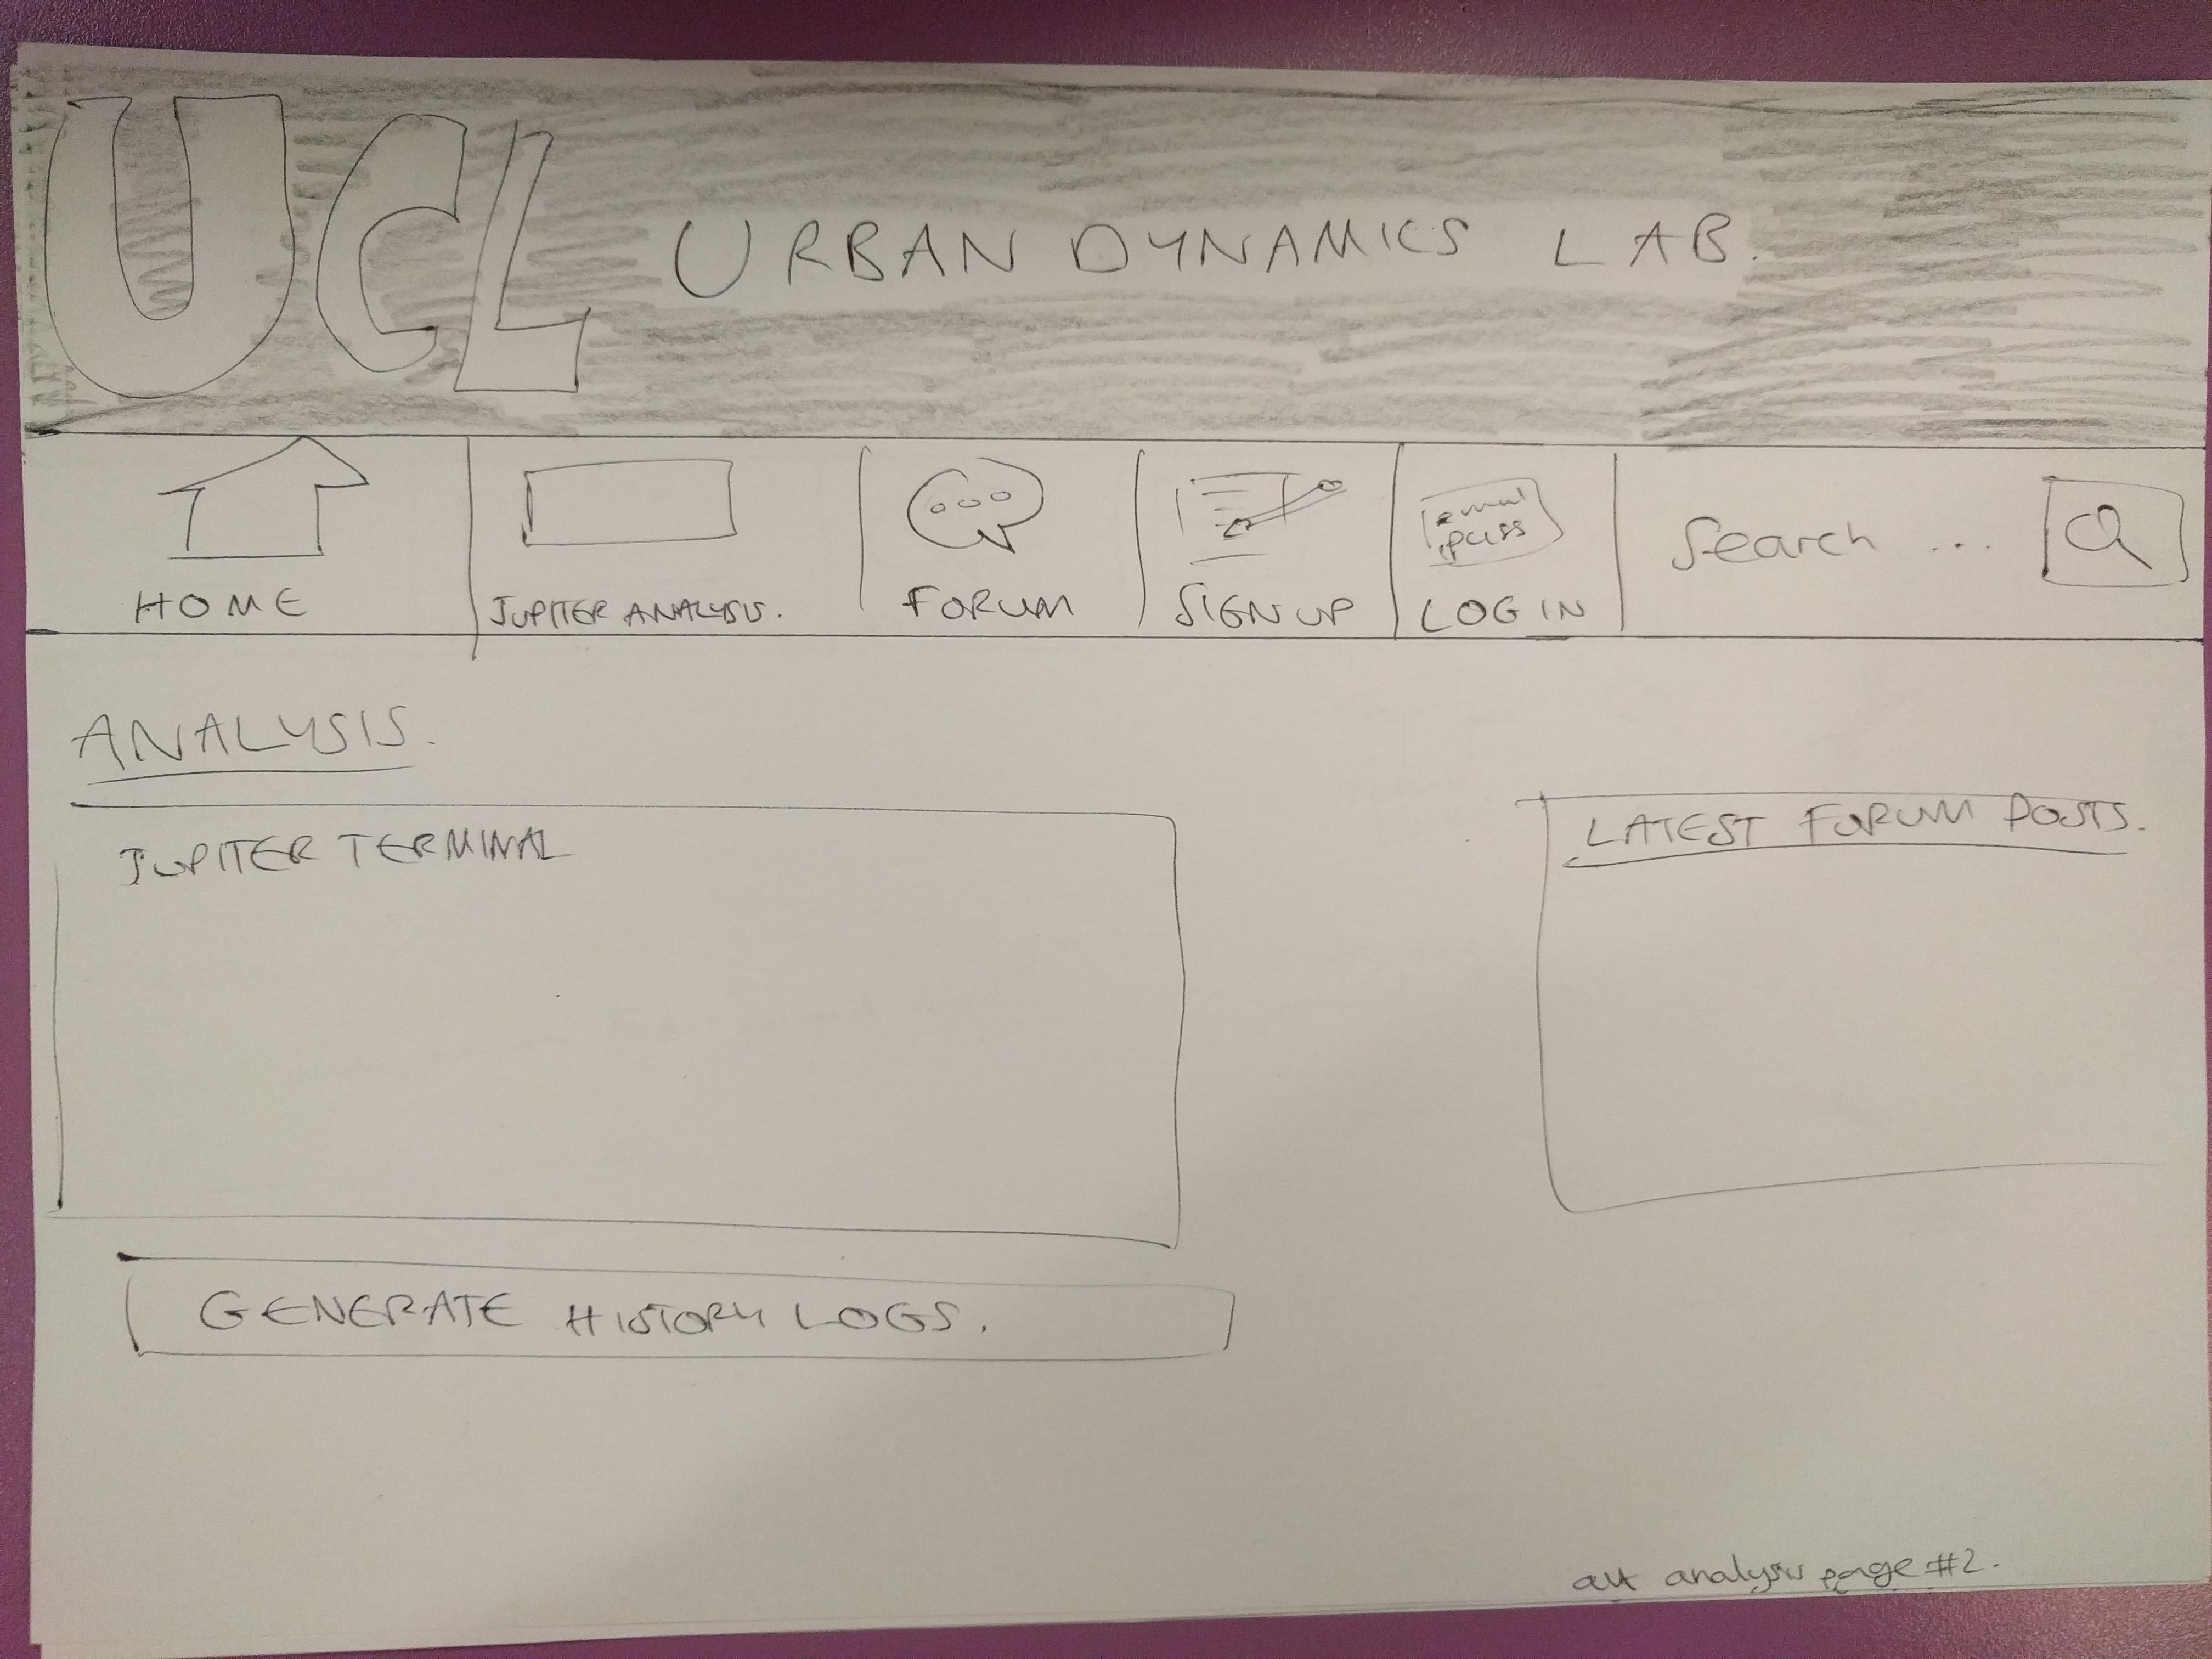 UCL URBAN DYNAMICS LAB.
HOME
JUPITER ANALYSIS.
FORUM
SIGN UP
email
pass
LOG IN
Search ...
ANALYSIS.
JUPITER TERMINAL
LATEST FORUM POSTS.
GENERATE HISTORY LOGS.
alt analysis page #2.